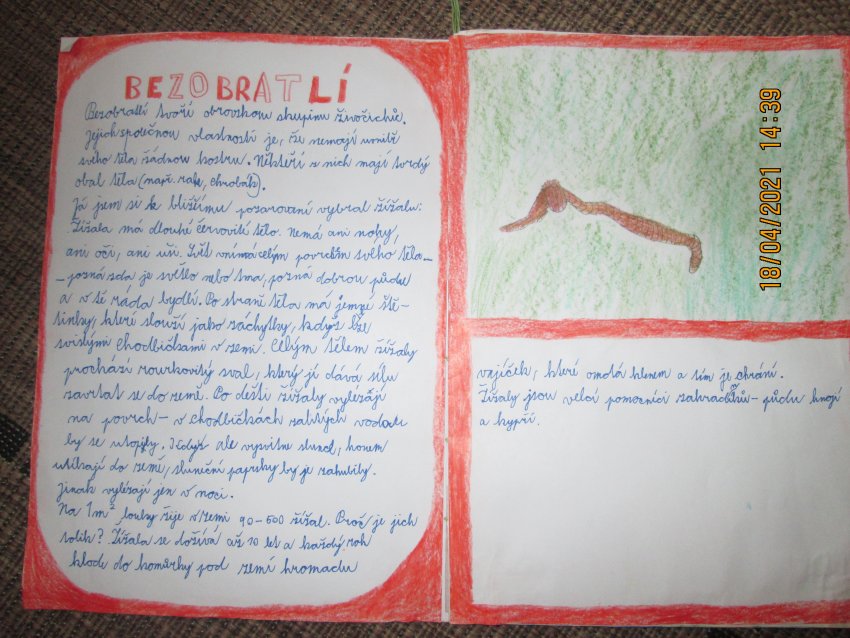 BEZOBRATLÍ
Bezobratlí tvoří obrovskou skupinu živočichů.
Jejich společnou vlastností je, že nemají uvnitř
svého těla žádnou kostru. Někteří z nich mají tvrdý
obal těla (např. rak, chrobák).
Já jsem si ke bližšímu pozorování vybral žížalu:
Žížala má dlouhé červovité tělo. Nemá ani nohy,
ani oči, ani uši. Svět vnímá celým povrchem svého těla-
- pozná zda je světlo nebo tma, pozná dobrou půdu
a v té ráda bydlí. Po straně těla má jemné ště-
tinky, které slouží jako záchytky, když leze
svislými chodbičkami v zemi. Celým tělem žížaly
prochází rourkovitý sval, který jí dává sílu
zavrtat se do země. Po dešti žížaly vylézají
na povrch - v chodbičkách zalitých vodou
by se utopily. Když ale vysvitne slunce, honem
utíkají do země, sluneční paprsky by je zahubily.
Jinak vylézají jen v noci.
Na 1m² louky žije v zemi 90-500 žížal. Proč je jich
tolik? Žížala se dožívá až 10 let a každý rok
klade do komůrky pod zemí hromadu
vajíček, které omotá hlenem a tím je chrání.
Žížaly jsou velcí pomocníci zahradníků - půdu hnojí
a kypří.
18/04/2021 14:39